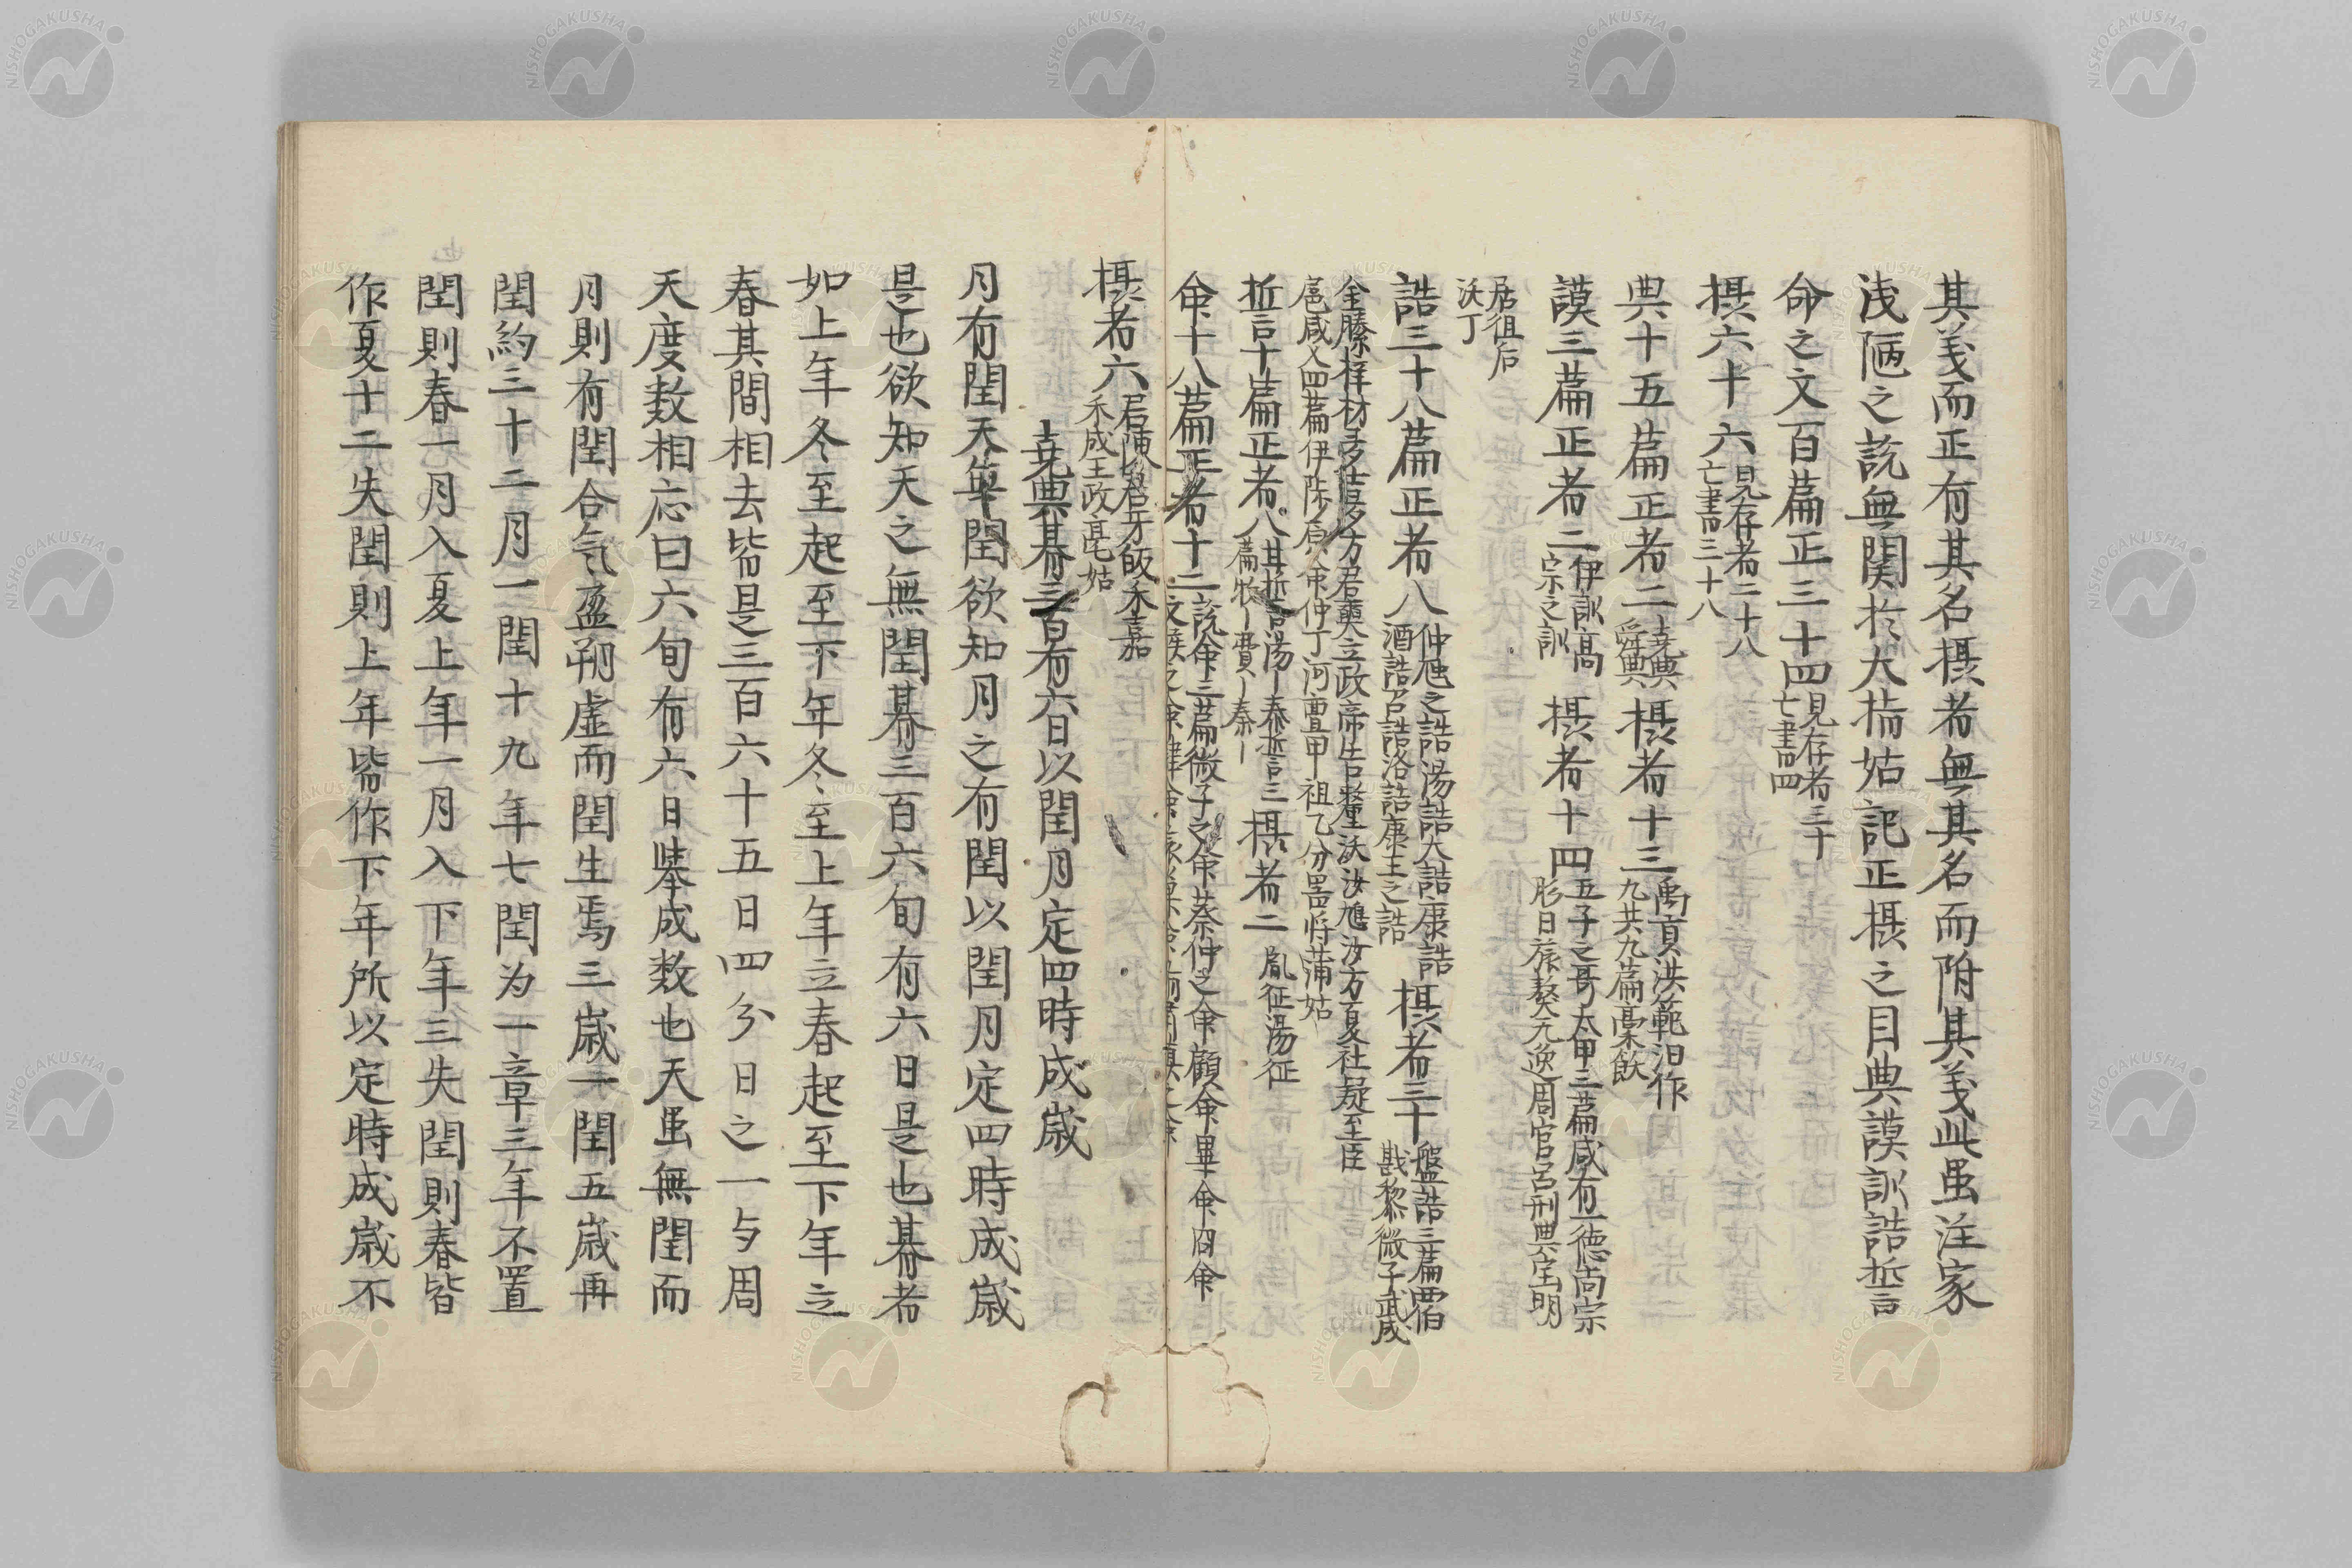 其義而正有其名摂者無其名而附其義此虽注家
浅陋之説無関於大指姑記正摂之目典謨訓誥誓
命之文百篇正三十四見存者三十
亡書四
摂六十六見存者二十八
亡書三十八
典十五篇正者二堯典
舜典摂者十三禹貢洪範汩作
九共九篇槀飫
謨三篇正者二伊訓高
宗之訓摂者十四五子之哥太甲三篇咸有一德尚宗
肜日旅獒无逸周官呂刑典宝明
居徂后
沃丁
誥三十八篇正者八仲虺之誥湯誥大誥康誥
酒誥召誥洛誥康王之誥摂者三十盤誥三篇西伯
戡黎微子武成
金縢梓材多士多方君奭立政帝告釐沃汝鳩汝方夏社疑至臣
扈咸乂四篇伊陟原命仲丁河亶甲祖乙分器将蒲姑
誓十篇正者八其誓湯〡泰誓三
篇牧〡費〡秦〡摂者二胤征湯征
命十八篇正者十二説命三篇微子之命蔡仲之命顧命畢命冏命
摂者六君陳君牙皈禾嘉
禾成王政亳姑
堯典朞三百有六日以閏月定四時成歳
月有閏天無閏欲知月之有閏以閏月定四時成歳
是也欲知天之無閏朞三百六旬有六日是也朞者
如上年冬至起至下年冬至上年立春起至下年立
春其間相去皆是三百六十五日四分日之一与周
天度数相应曰六旬有六日挙成数也天虽無閏而
月則有閏合気盈朔虚而閏生焉三歳一閏五歳再
閏約三十二月一閏十九年七閏为一章三年不置
閏則春一月入夏上年一月入下年三失閏則春皆
作夏十二失閏則上年皆作下年所以定時成歳不